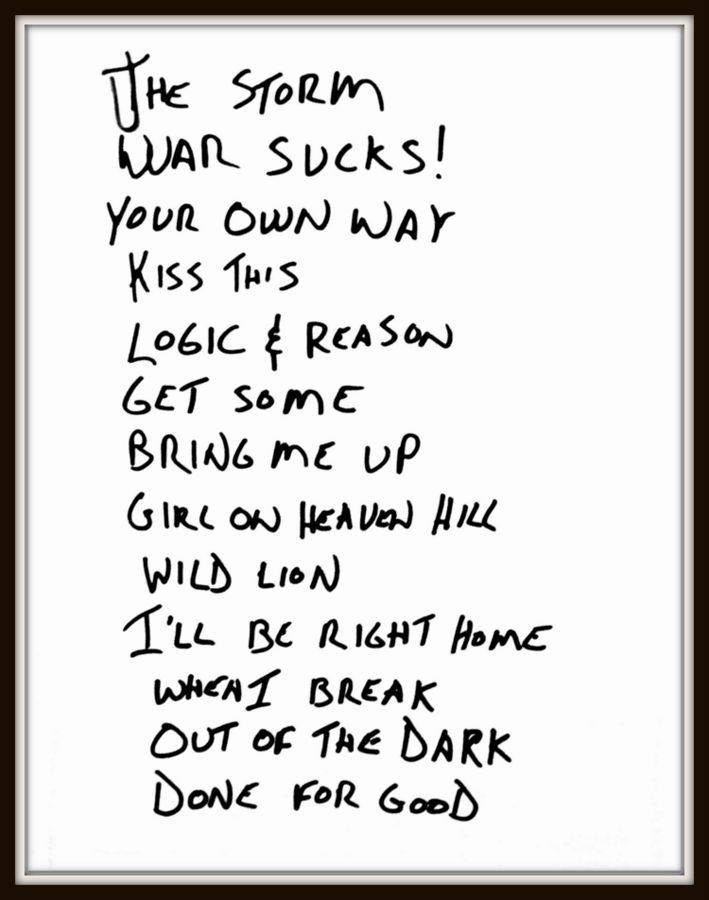 THE STORM
WAR SUCKS!
YOUR OWN WAY
KISS THIS
LOGIC & REASON
GET SOME
BRING ME UP
GIRL ON HEAVEN HILL
WILD LION
I'LL BE RIGHT HOME
WHEN I BREAK
OUT OF THE DARK
DONE FOR GOOD